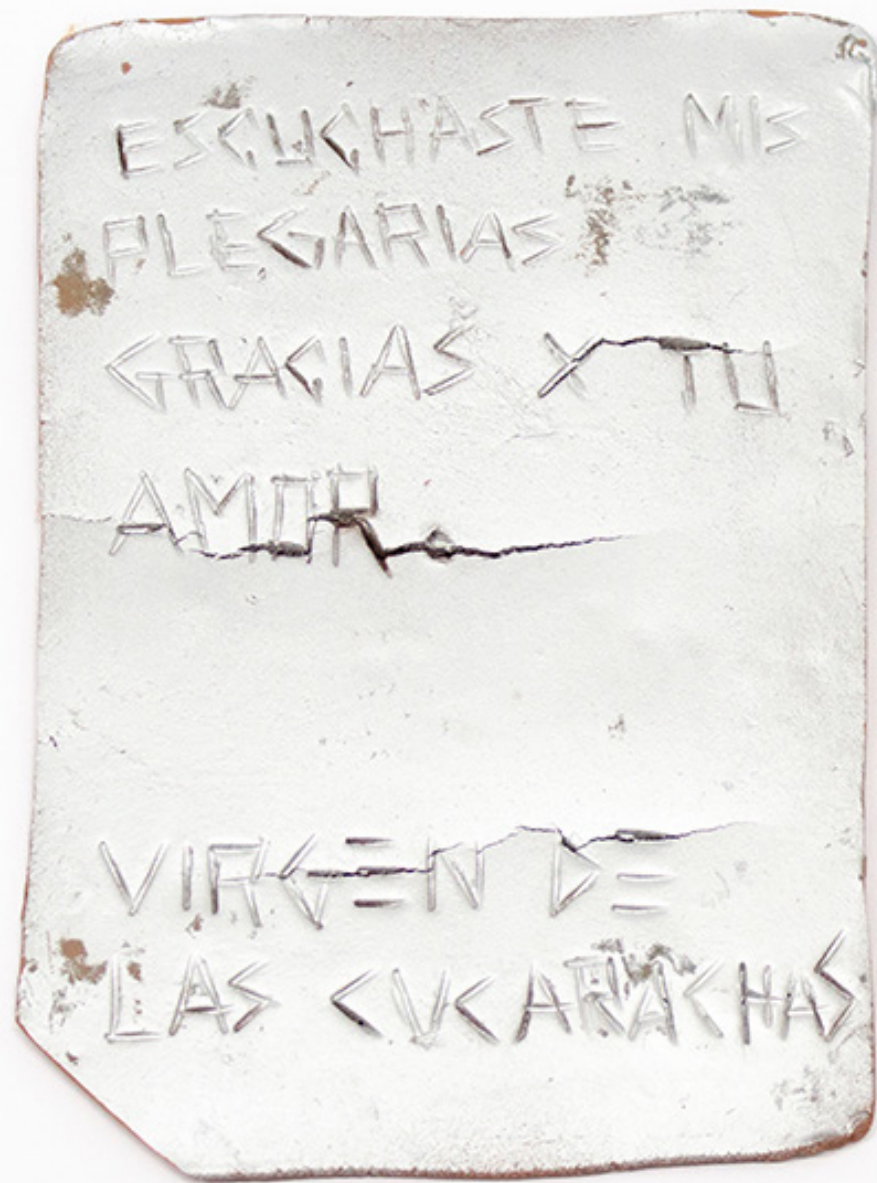 ESCUCHASTE MIS
PLEGARIAS
GRACIAS X TU
AMOR.
VIRGEN DE
LAS CUCARACHAS